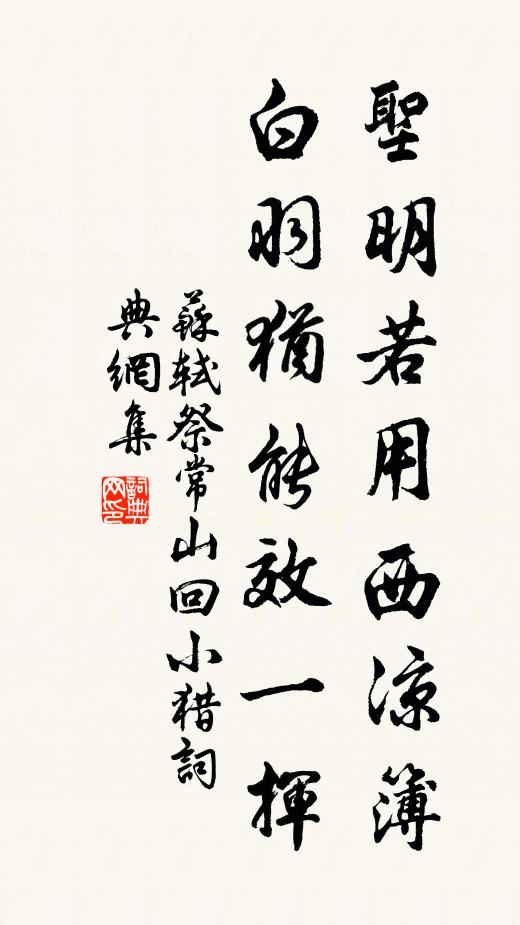 聖明若用西凉簿
白羽猶能效一揮
蘇軾祭常山回小猎詞
典網集
詞典网印